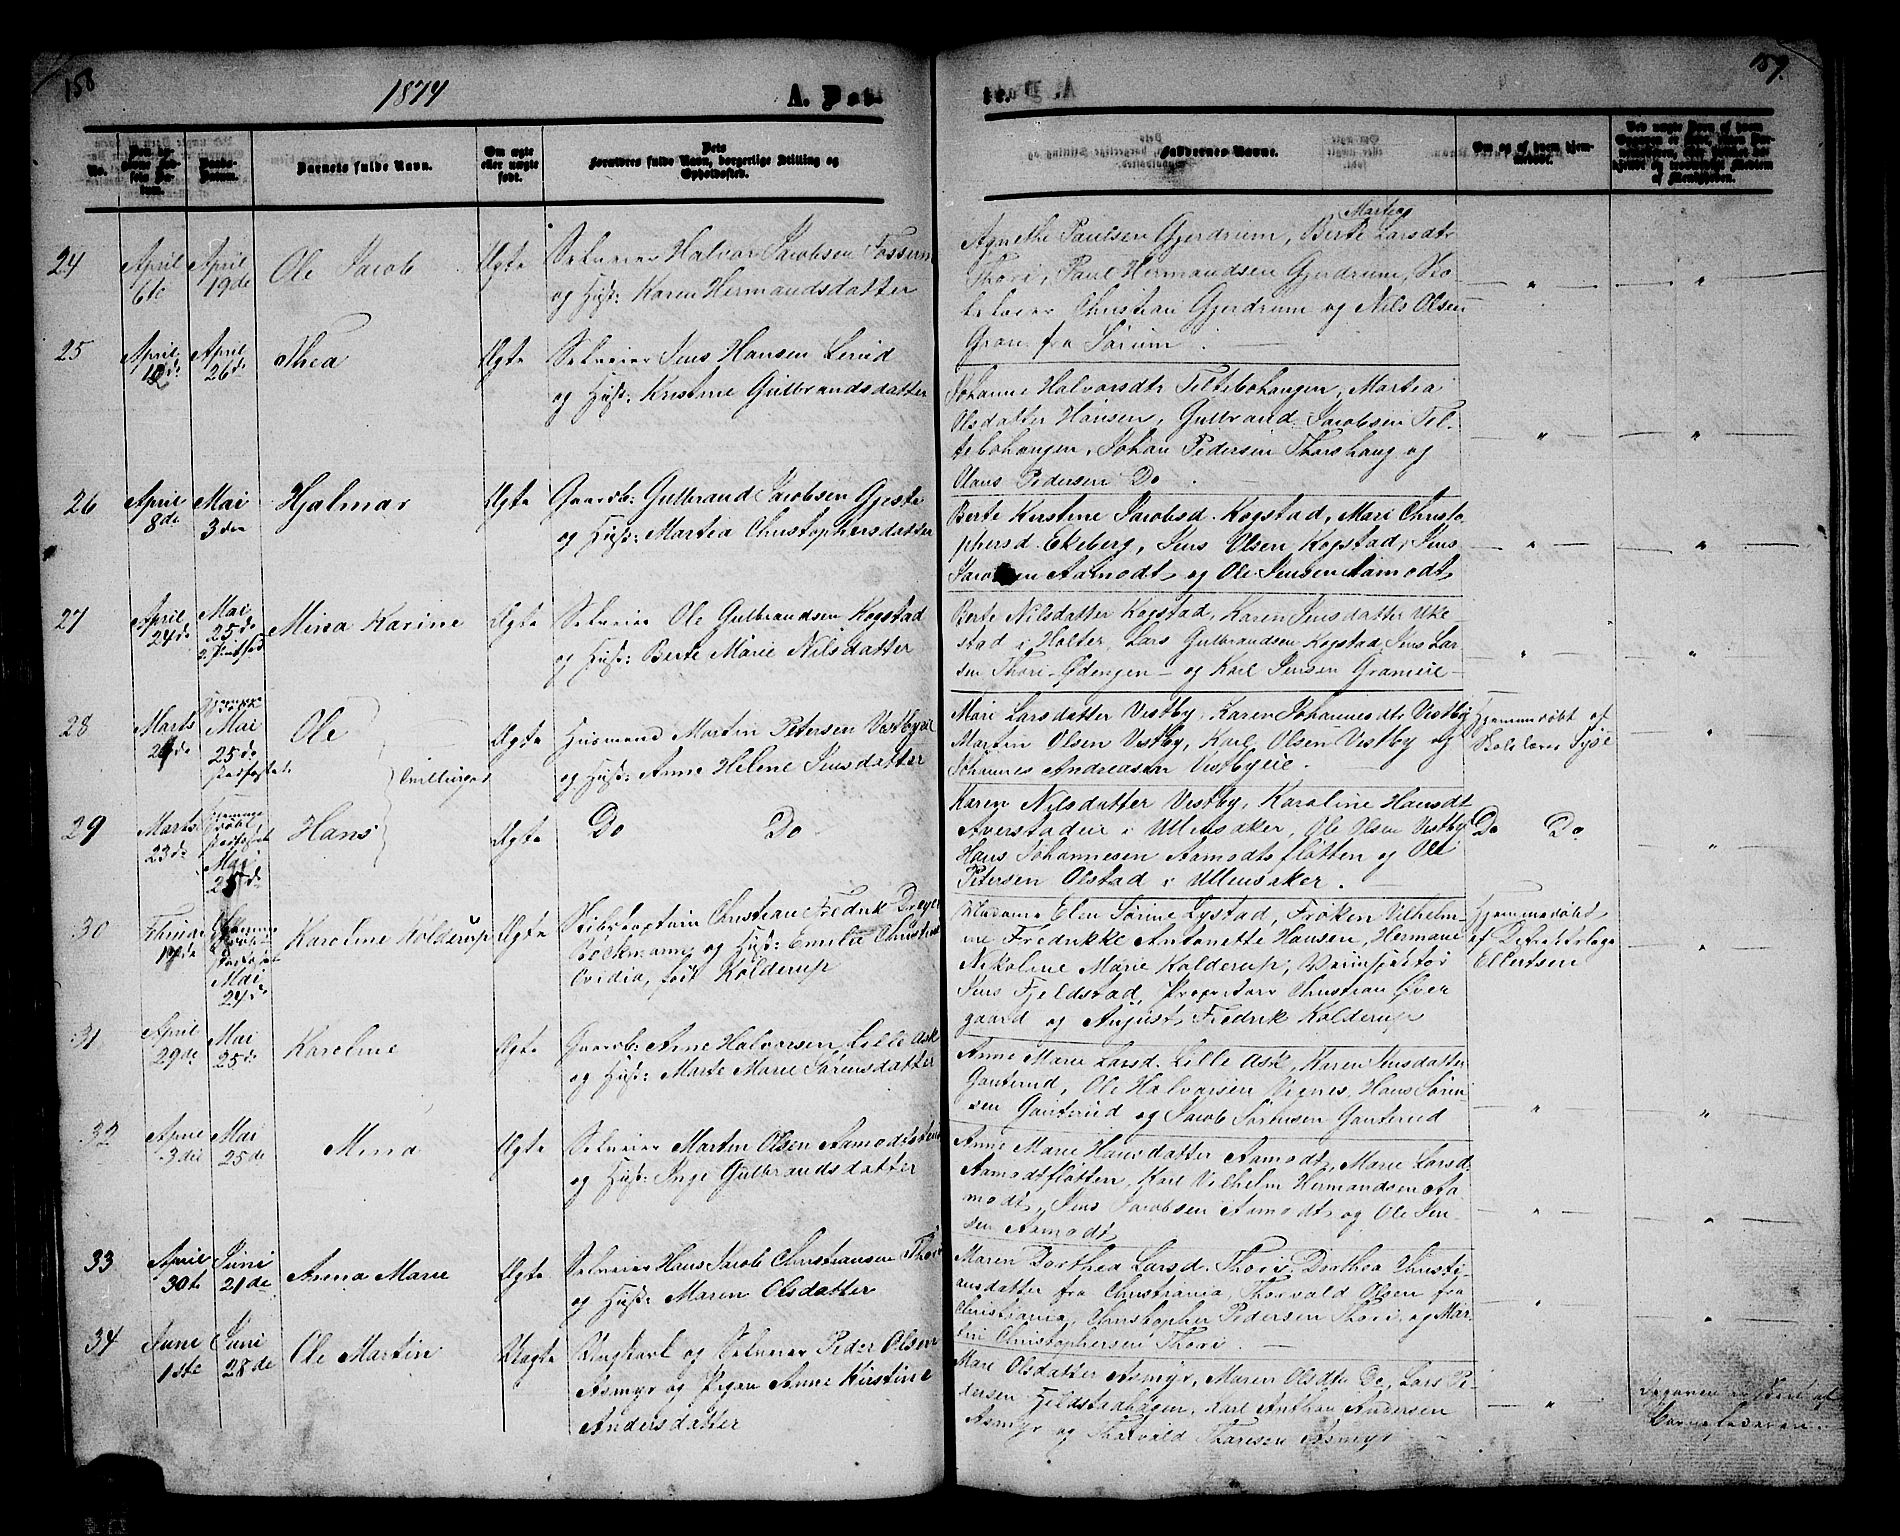 158
1874
A. Døb
159.
No.
Barnets fulde Navn.
Om ægte eller uægte født.
Forældres fulde Navn, borgerlige Stilling og Opholdssted.
Faddernes Navne.
Om og af hvem hjemmedøbt.
24
April 6te
April 19de
Ole Jacob
Ægte
Selveier Halvor Jacobsen Fossum
og Hust: Karen Hermandsdatter
Agnethe Paulsen Gjerdrum, Berte Larsdt.
Thori, Paul Hermandsen Gjerdrum,
Christian Gjerdrum og Nils Olsen
Gran fra Sørum.
25
April
April 26de
Thea
Ægte
Selveier Jens Hansen Lerud
og Hust: Kristine Gulbrandsdatter
Johanne Halvorsdtr Teltebohaugen, Martea
Olsdatter Hansen, Gulbrand Jacobsen Tel-
tebohaugen, Johan Pedersen Thorshaug og
Hans Pedersen Do.
26
April 8de
Mai 3die
Hjalmar
Ægte
Gaardb: Gulbrand Jacobsen Gjestad
og Hust: Martea Christophersdatter
Berte Kirstine Jacobsd. Kogstad, Mari Christo-
phersd. Ekeberg, Jens Olsen Kogstad, Jens
Jacobsen Aamodt og Ole Jensen Aamodt
27
April 24de
Mai 25de
2. Pintsed.
Mina Karine
Ægte
Selveier Ole Gulbrandsen Kogstad
og Hust: Berte Marie Nilsdatter
Berte Nilsdatter Kogstad, Karen Jensdatter Uke-
stad i Holter, Lars Gulbrandsen Kogstad, Jens Lar-
sen Thori-Ødengen - og Karl Jensen Grameie
28
Marts
Mai 25de
Ole
Tvillinger
Ægte
Husmand Martin Petersen Vestbyeie
og Hust: Anne Helene Jensdatter
Mari Larsdatter Vestby, Karen Johannesdt Vestby
Martin Olsen Vestby, Karl Olsen Vestby og
Johannes Andreassen Vestbyeie.
Hjemmedøbt af
Skolelærer Syse
29
Marts 23de
Hjemmedøbt
Mai 25de
Hans
Ægte
Do Do
Karen Nilsdatter Vestby, Karoline Hansdt
Averstadeie i Ullensaker, Ole Olsen Vestby
Hans Johannesen Aamodtsfløtten og Ole
Petersen Olstad i Ullensaker.
Do Do
30
Mai 24de
Karoline Kolderup
Ægte
Skibskaptein Christian Fredrik Dreyer
Böckmann og Hust: Emilie Christine
Ovidia, født Kolderup
Madame Elen Sørine Lystad, Frøken Vilhelmi-
ne Fredrikke Antonette Hansen, Hermane
Nikoline Marie Kolderup,
Jens Fjeldstad, Proprietær Christian Over
gaard og August Fredrik Kolderup
Hjemmedøbt
af Distriktslæge
Ellertsen
31
April 29de
Mai 25de
Karoline
Ægte
Gaardb: Arne Halvorsen Lille Ask
og Hust: Marte Marie Sørensdatter
Anne Marie Larsd. Lille Ask, Karen Jensdatter
Ganterud, Ole Halvorsen Vognes, Hans Søren-
sen Ganterud og Jacob Sørensen Ganterud
32
April 3die
Mai 25de
Mina
Ægte
Selveier Martin Olsen Aamodt
og Hust: Inge Gulbrandsdatter
Anne Marie Hansdatter Aamodt, Marie Larsd.
Aamodtfløtten, Karl Vilhelm Hermandsen Aa-
modt, Jens Jacobsen Aamodt og Ole Jen-
sen Aamodt
33
April 30te
Juni 21de
Anna Marie
Ægte
Selveier Hans Jacob Christiansen Thori
og Hust: Maren Olsdatter
Maren Dorthea Larsd. Thori, Dorthea Christi-
ansdatter fra Christiania, Thorvald Olsen fra
Christiania, Christopher Pedersen Thori og Mar-
tin Christophersen Thori.
34
Juni 1ste
Juni 28de
Ole Martin
Uægte
Ungkarl og Selveier Peder Olsen
Asmyr og Pigen Anne Kirstine
Andersdatter
Mari Olsdatter Asmyr, Maren Olsdtr Do, Lars Pe-
dersen Fjeldstadhagen, Karl Anthon Andersen
Asmyr og Thorvald Thoresen Asmyr
Opgaven
Barnefaderen